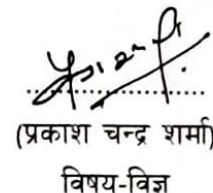 (प्रकाश चन्द्र शर्मा)
विषय-विज्ञ